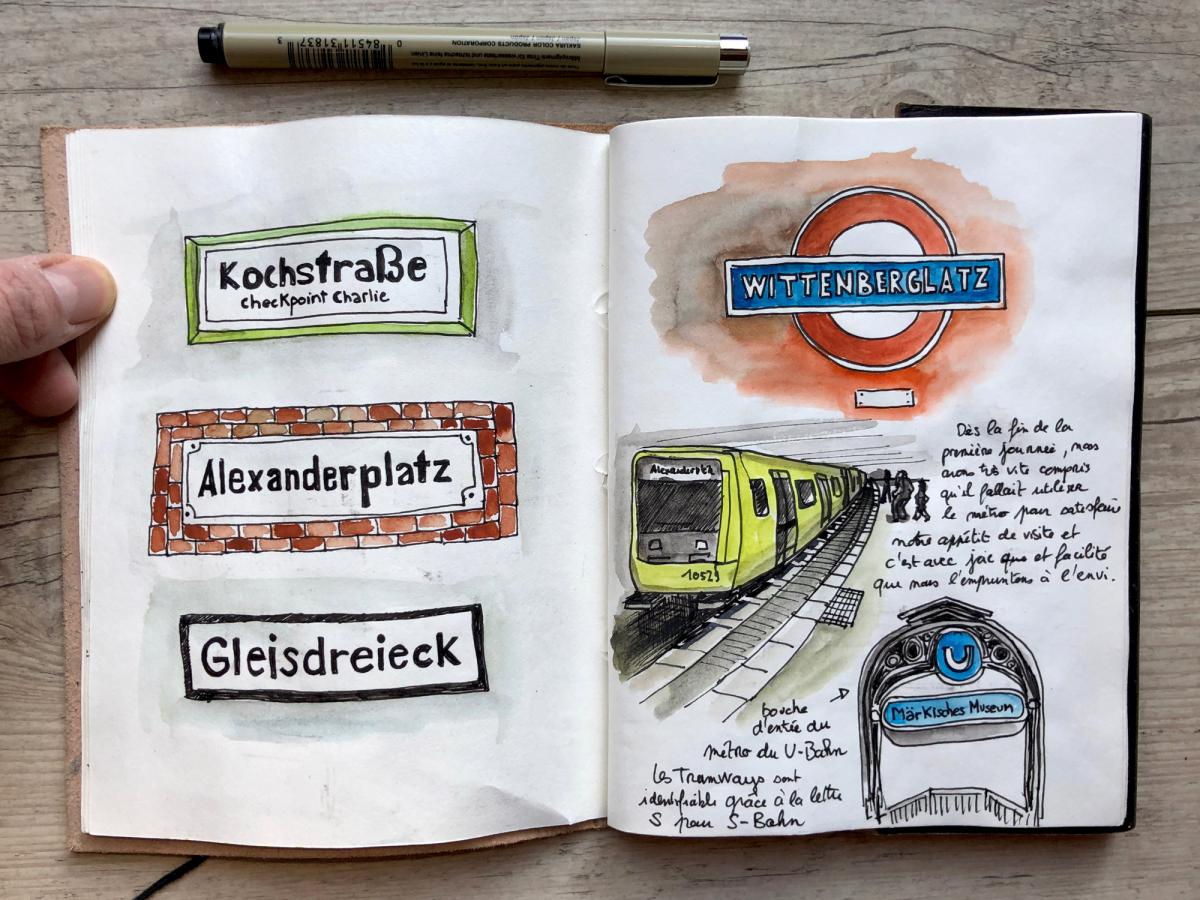 0 84511 31837 3
SAKURA COLOR PRODUCTS CORPORATION
Kochstraße
checkpoint Charlie
Alexanderplatz
Gleisdreieck
WITTENBERGLATZ
Alexanderplatz
10529
Dès la fin de la
première journée, nous
avons très vite compris
qu'il fallait utiliser
le métro pour satisfaire
notre appétit de visite et
c'est avec joie que et facilité
que nous l'empruntons à l'envi.
U
Märkisches Museum
bouche
d'entée du
métro du U-Bahn
Les Tramways sont
identifiable grâce à la lettre
S pour S-Bahn